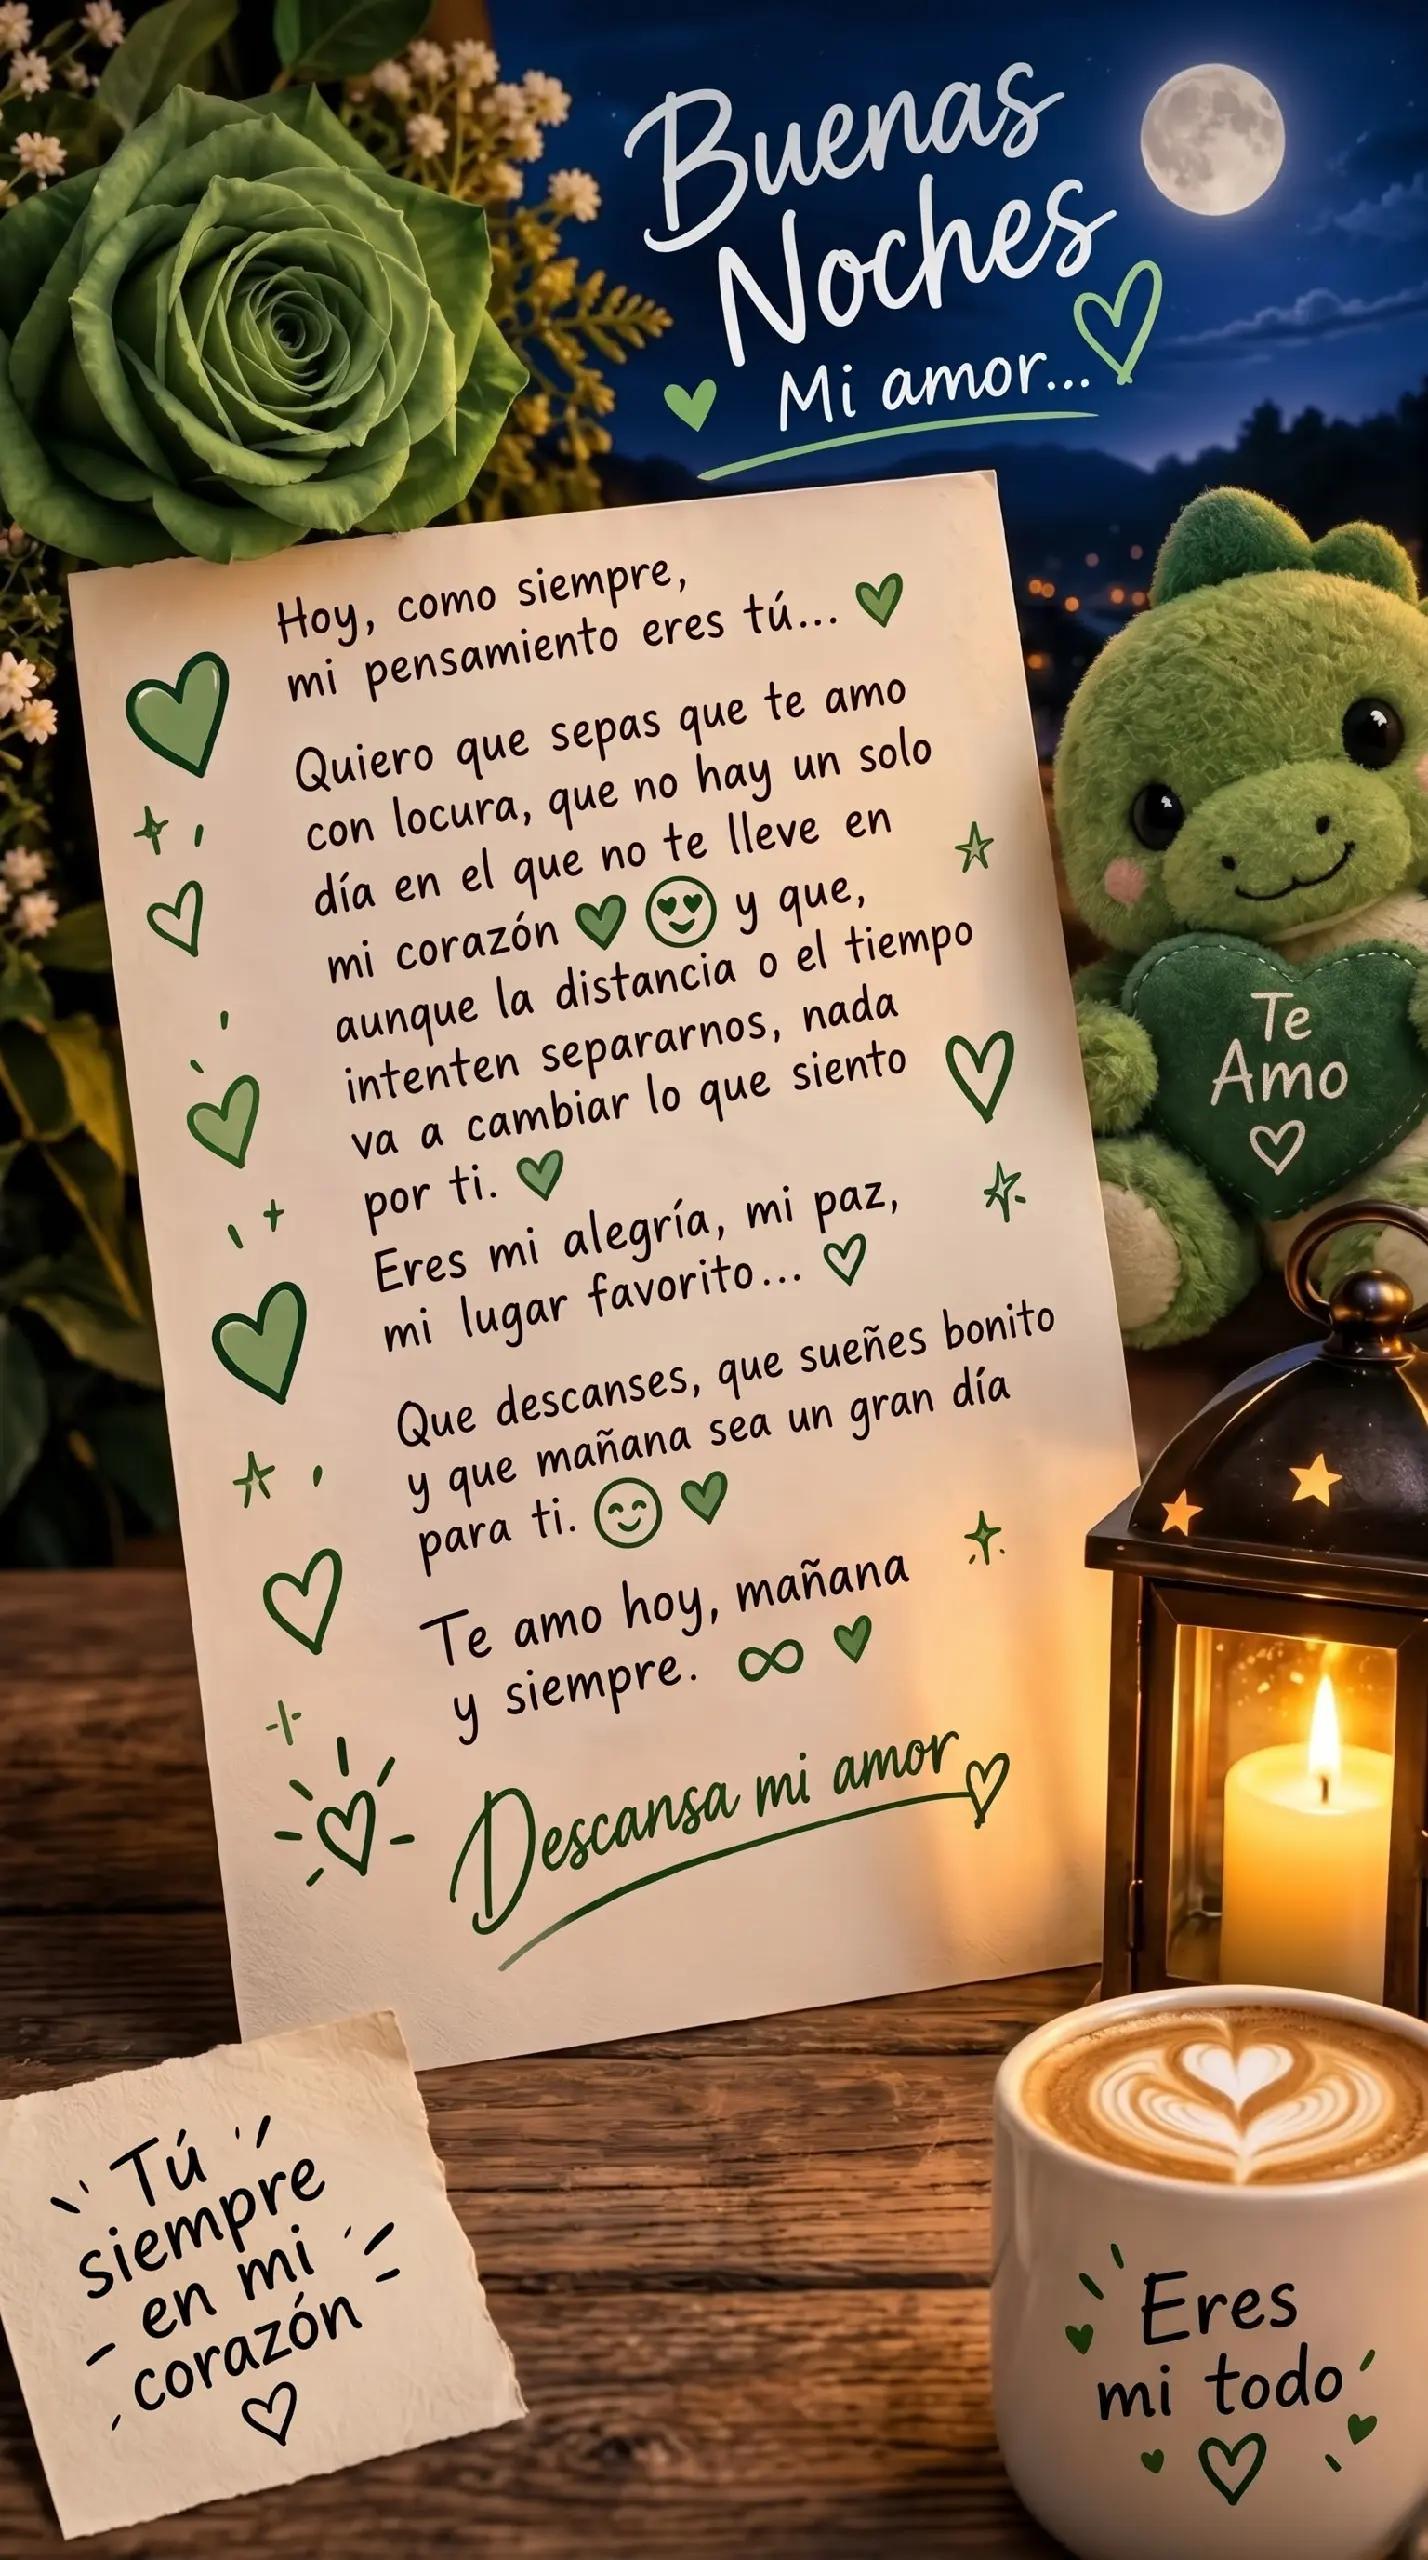 Buenas
Noches
Mi amor...
Hoy, como siempre,
mi pensamiento eres tú...
Quiero que sepas que te amo
con locura, que no hay un solo
día en el que no te lleve en
mi corazón y que,
aunque la distancia o el tiempo
intenten separarnos, nada
va a cambiar lo que siento
por ti.
Eres mi alegría, mi paz,
mi lugar favorito...
Que descanses, que sueñes bonito
y que mañana sea un gran día
para ti.
Te amo hoy, mañana
y siempre. ∞
Descansa mi amor
Te
Amo
Tú
siempre
en mi
corazón
Eres
mi todo